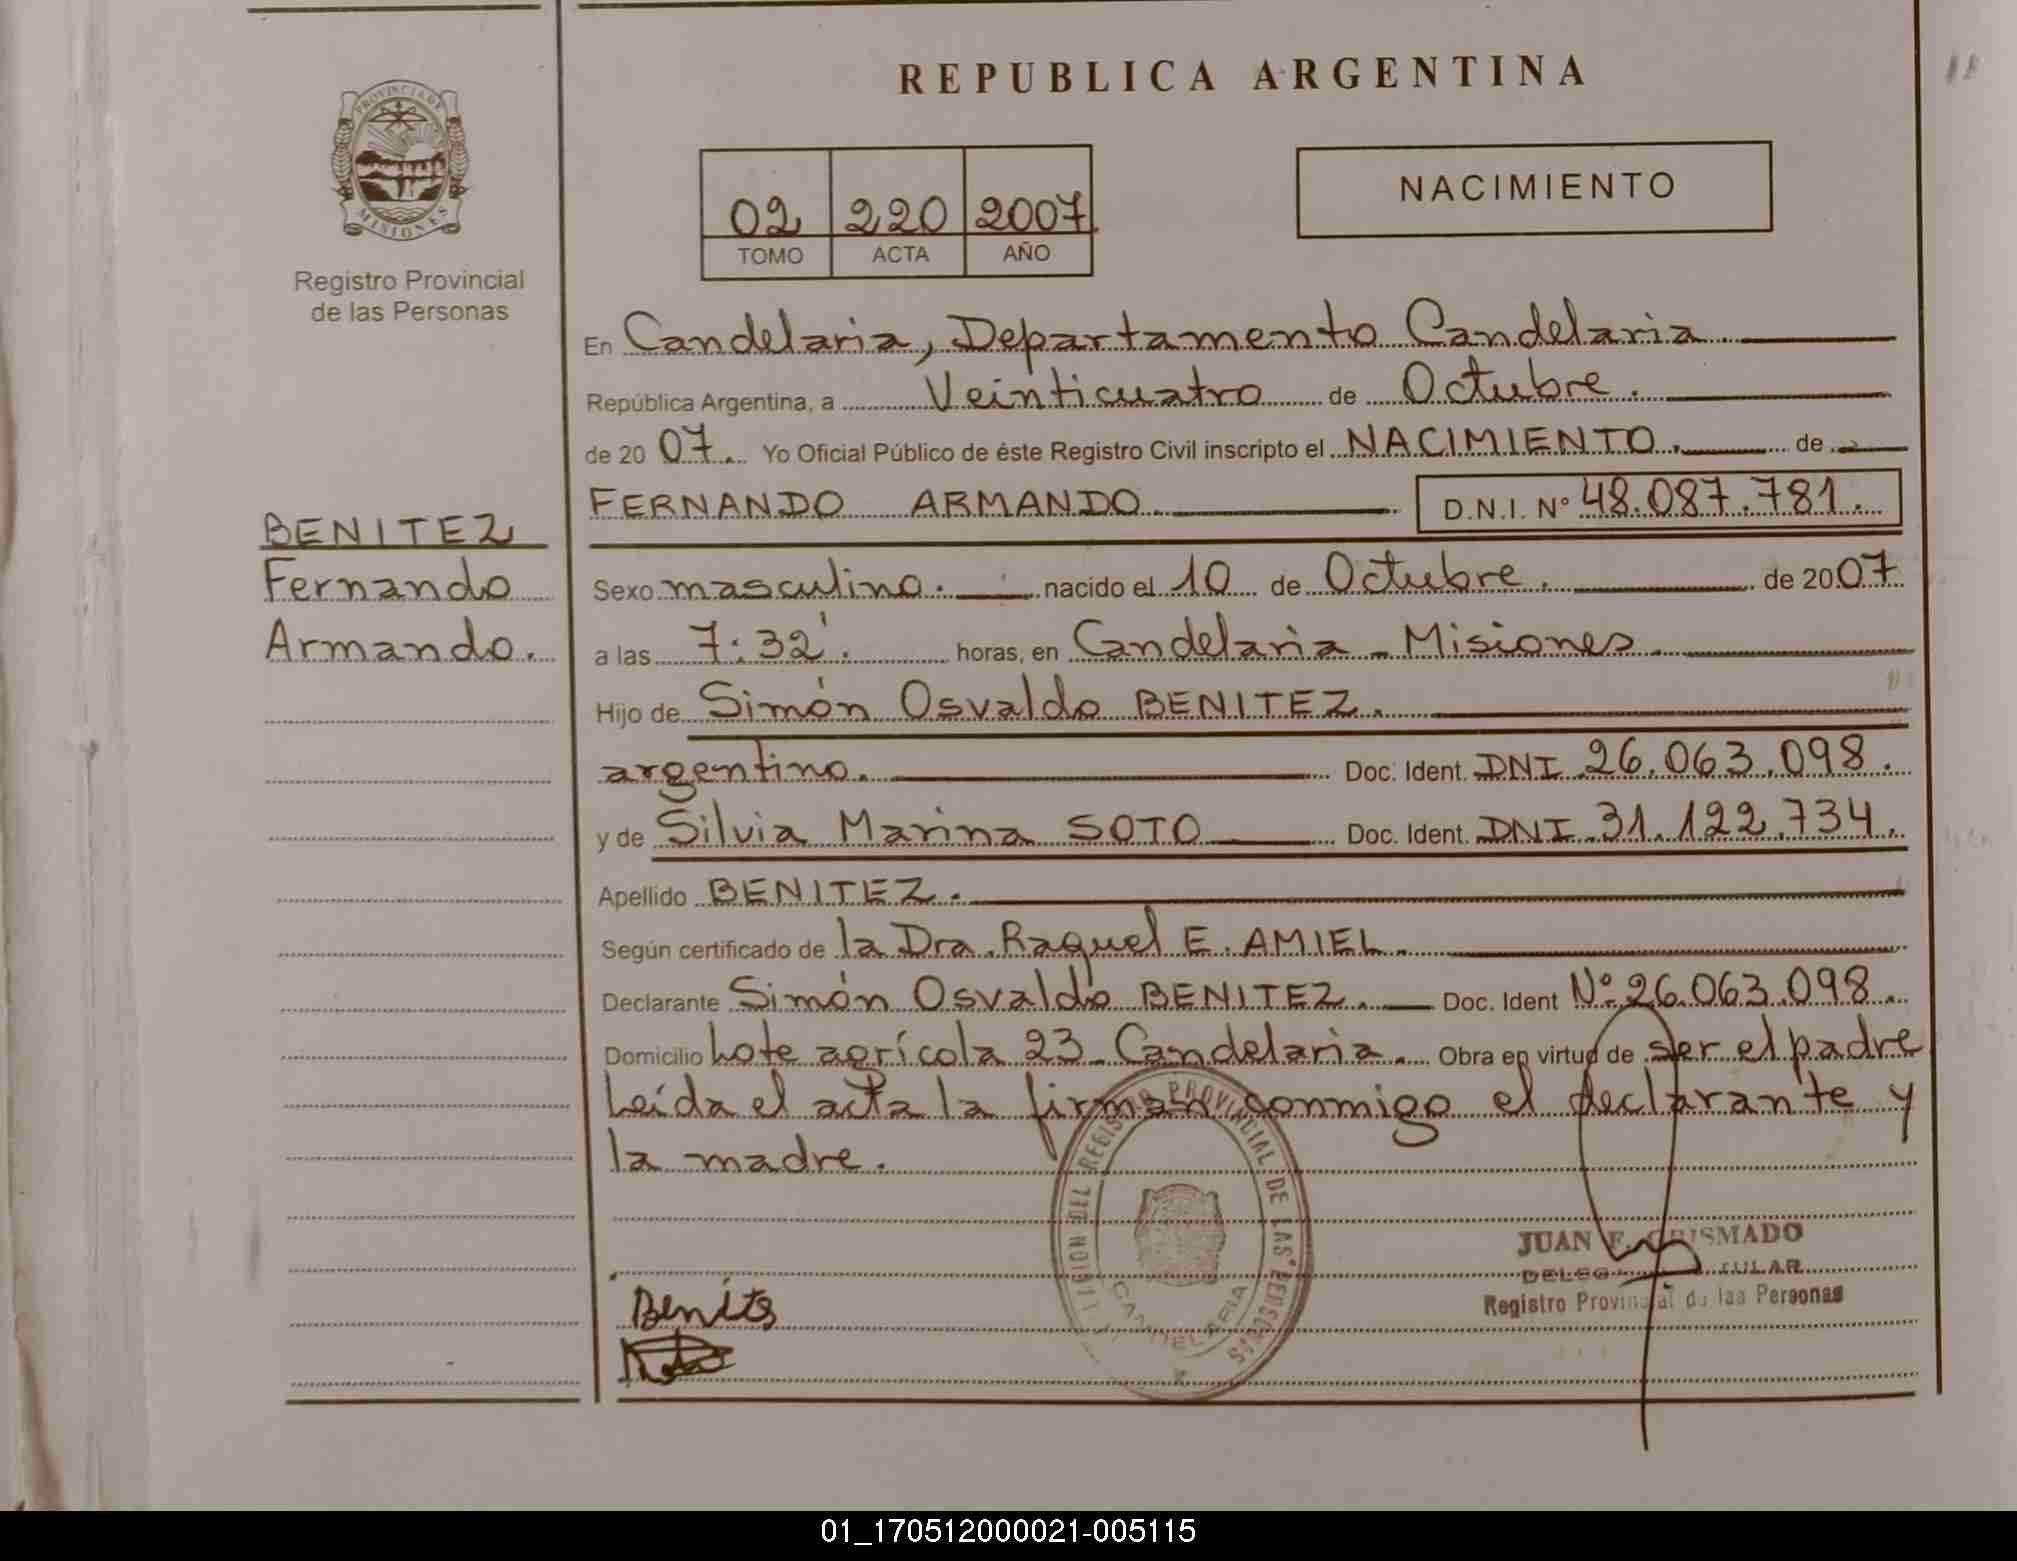 REPUBLICA ARGENTINA
PROVINCIA DE
MISIONES
Registro Provincial
de las Personas
02 220 2007
TOMO ACTA AÑO
NACIMIENTO
En Candelaria, Departamento Candelaria
República Argentina, a Veinticuatro de Octubre.
de 20 07. Yo Oficial Público de éste Registro Civil inscripto el NACIMIENTO. de
FERNANDO ARMANDO D.N.I. Nº 48.087.781.
BENITEZ
Fernando
Armando.
Sexo masculino. nacido el 10 de Octubre. de 20 07
a las 7:32'. horas, en Candelaria - Misiones.
Hijo de Simón Osvaldo BENITEZ.
argentino. Doc. Ident. DNI 26.063.098.
y de Silvia Marina SOTO Doc. Ident. DNI 31.122.734.
Apellido BENITEZ.
Según certificado de la Dra. Raquel E. AMIEL.
Declarante Simón Osvaldo BENITEZ. Doc. Ident Nº 26.063.098.
Domicilio Lote agrícola 23 - Candelaria. Obra en virtud de ser el padre
Leída el acta la firman conmigo el declarante y
la madre.
DEL REGISTRO PROVINCIAL DE LAS PERSONAS
CANDELARIA
JUAN F.
Registro Provincial de las Personas
01_170512000021-005115